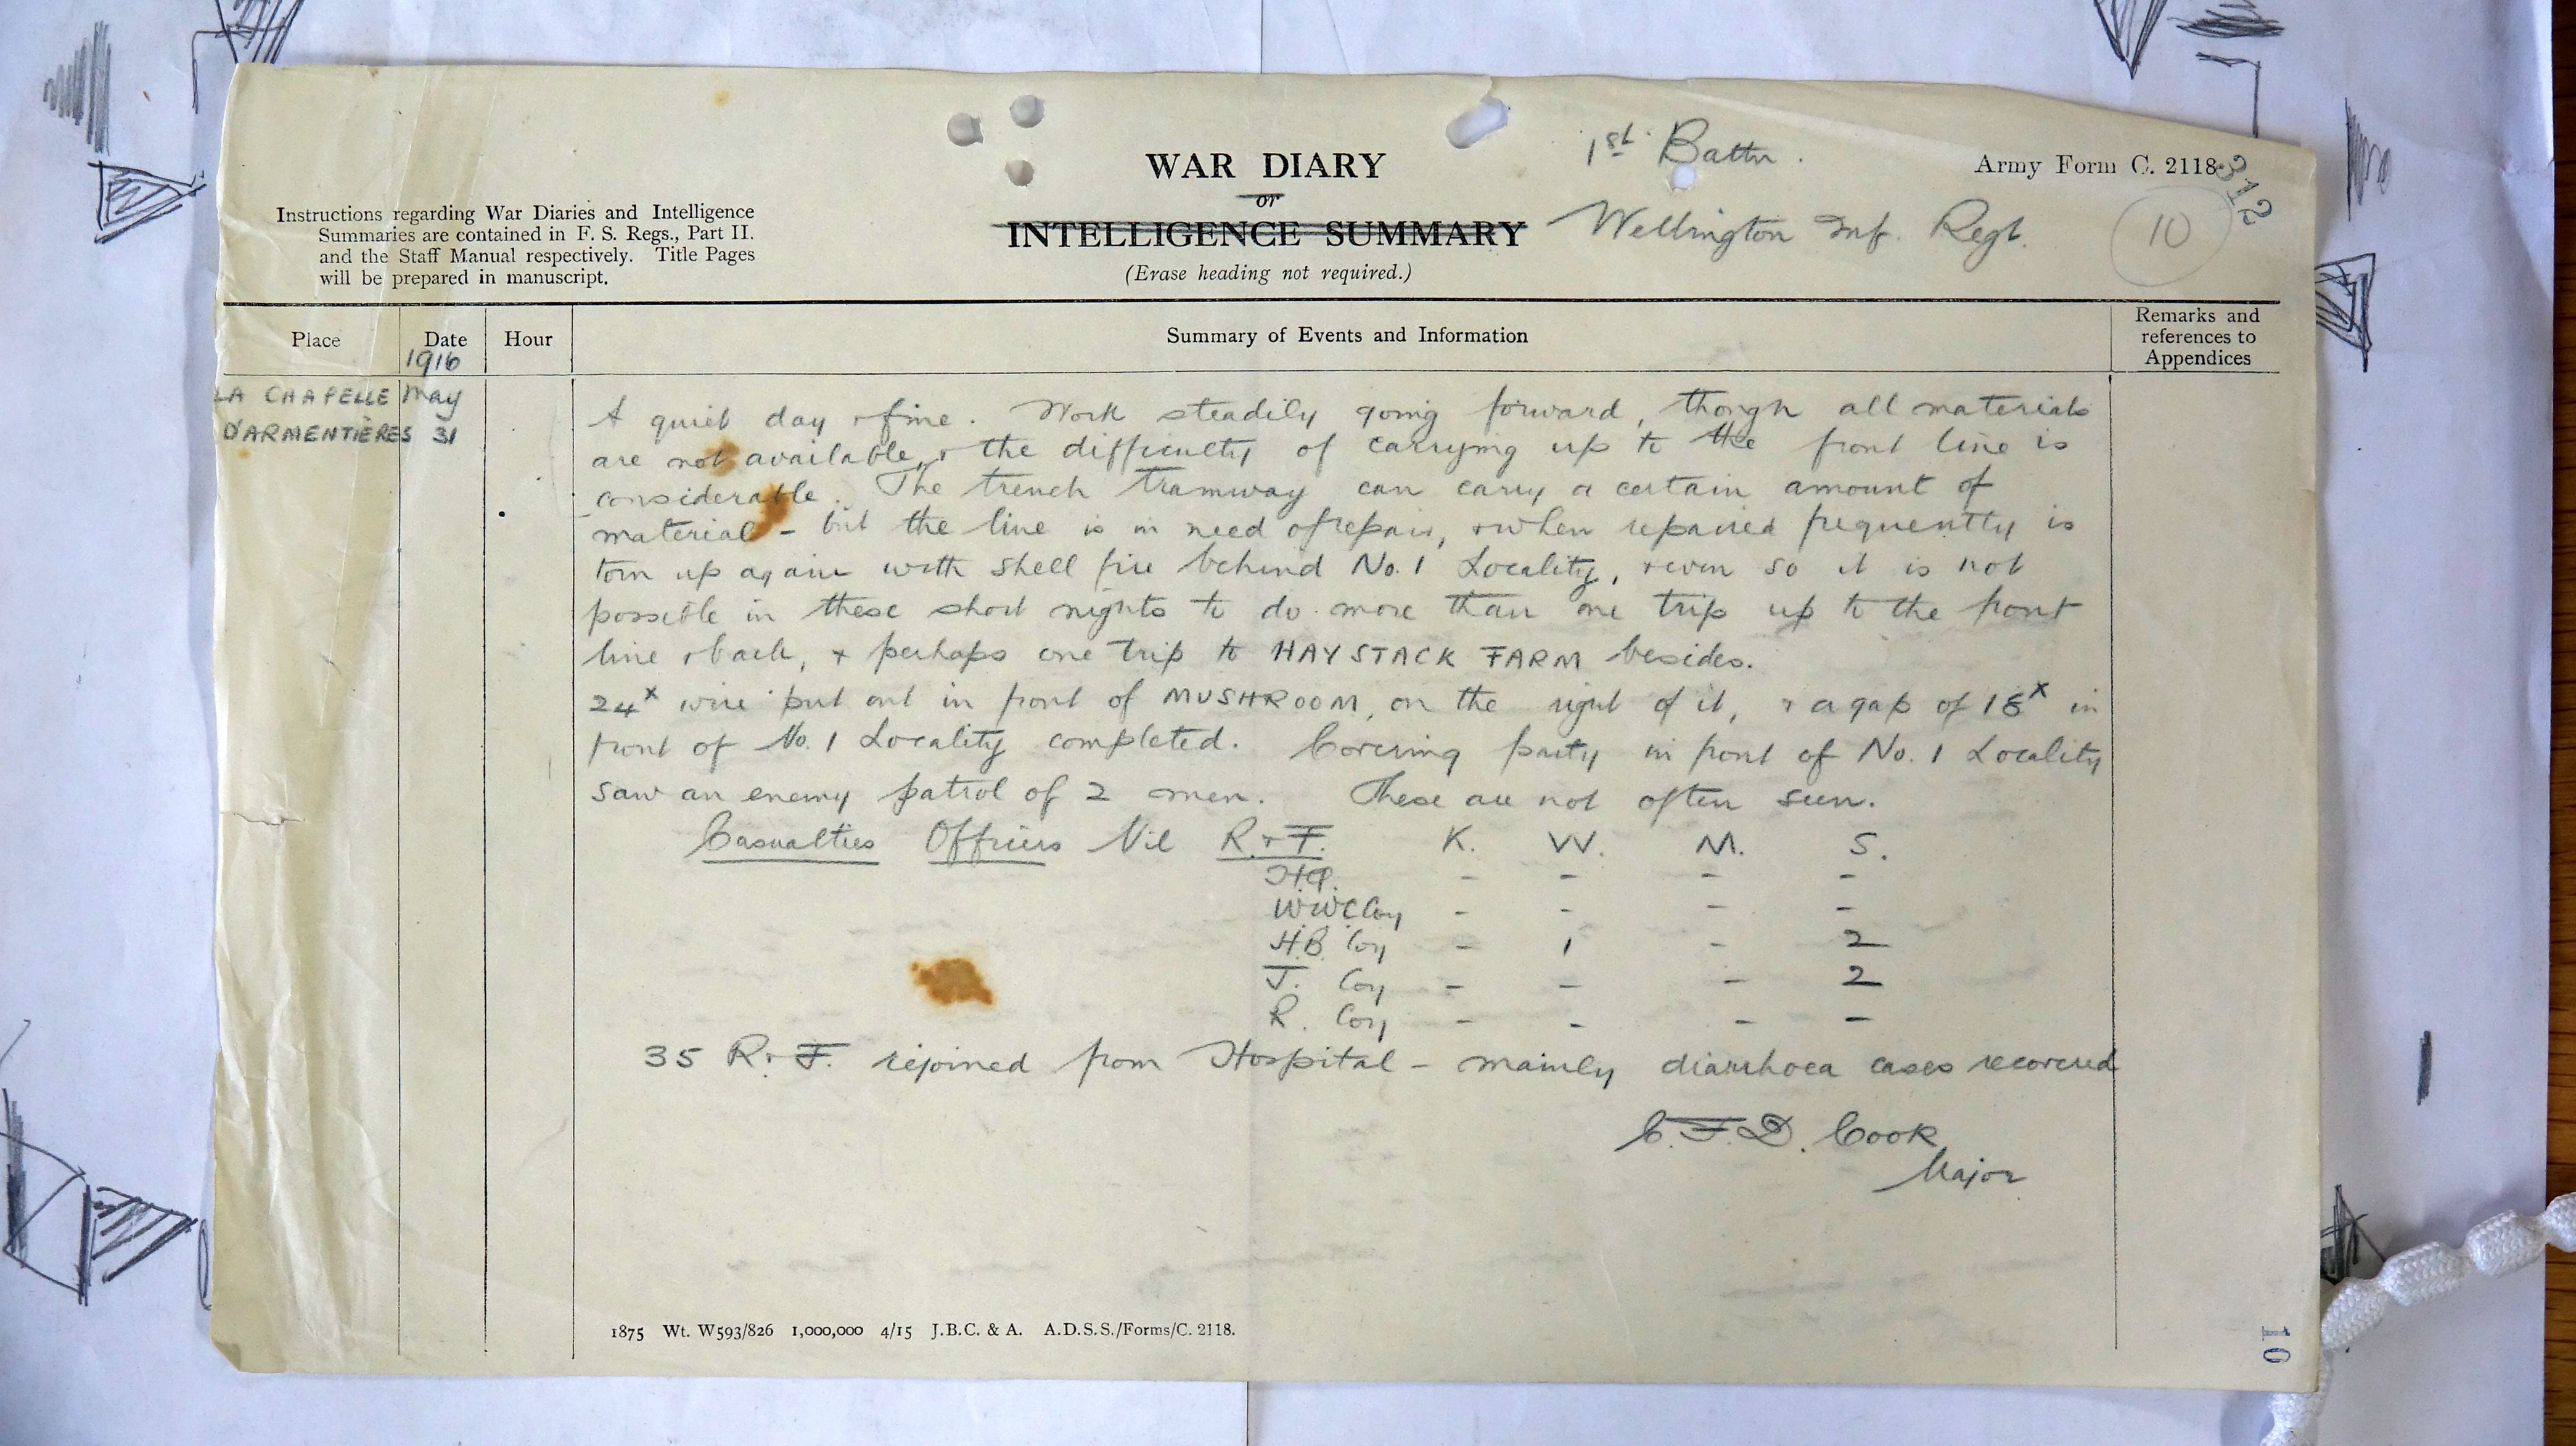 1st Battn.
Army Form C. 2118.
312
WAR DIARY
or
INTELLIGENCE SUMMARY
(Erase heading not required.)
Wellington Inf. Regt.
10
Instructions regarding War Diaries and Intelligence
Summaries are contained in F. S. Regs., Part II.
and the Staff Manual respectively. Title Pages
will be prepared in manuscript.
Place Date Hour Summary of Events and Information Remarks and references to Appendices
1916
LA CHAPELLE May
D'ARMENTIÈRES 31
A quiet day & fine. Work steadily going forward, though all materials
are not available, & the difficulty of carrying up to the front line is
considerable. The trench tramway can carry a certain amount of
material - but the line is in need of repair, & when repaired frequently is
torn up again with shell fire behind No. 1 Locality, & even so it is not
possible in these short nights to do more than one trip up to the front
line & back, & perhaps one trip to HAYSTACK FARM besides.
24x wire put out in front of MUSHROOM, on the right of it, & a gap of 18x in
front of No. 1 Locality completed. Covering party in front of No. 1 Locality
saw an enemy patrol of 2 men. These are not often seen.
Casualties Officers Nil R. & F. K. W. M. S.
H.Q. - - - -
W.W.C Coy - - - -
H.B. Coy - 1 - 2
T. Coy - - - 2
R. Coy - - - -
35 R. & F. rejoined from Hospital - mainly diarrhoea cases recovered
C.F.D. Cook
Major
1875 Wt. W593/826 1,000,000 4/15 J.B.C. & A. A.D.S.S./Forms/C. 2118.
10